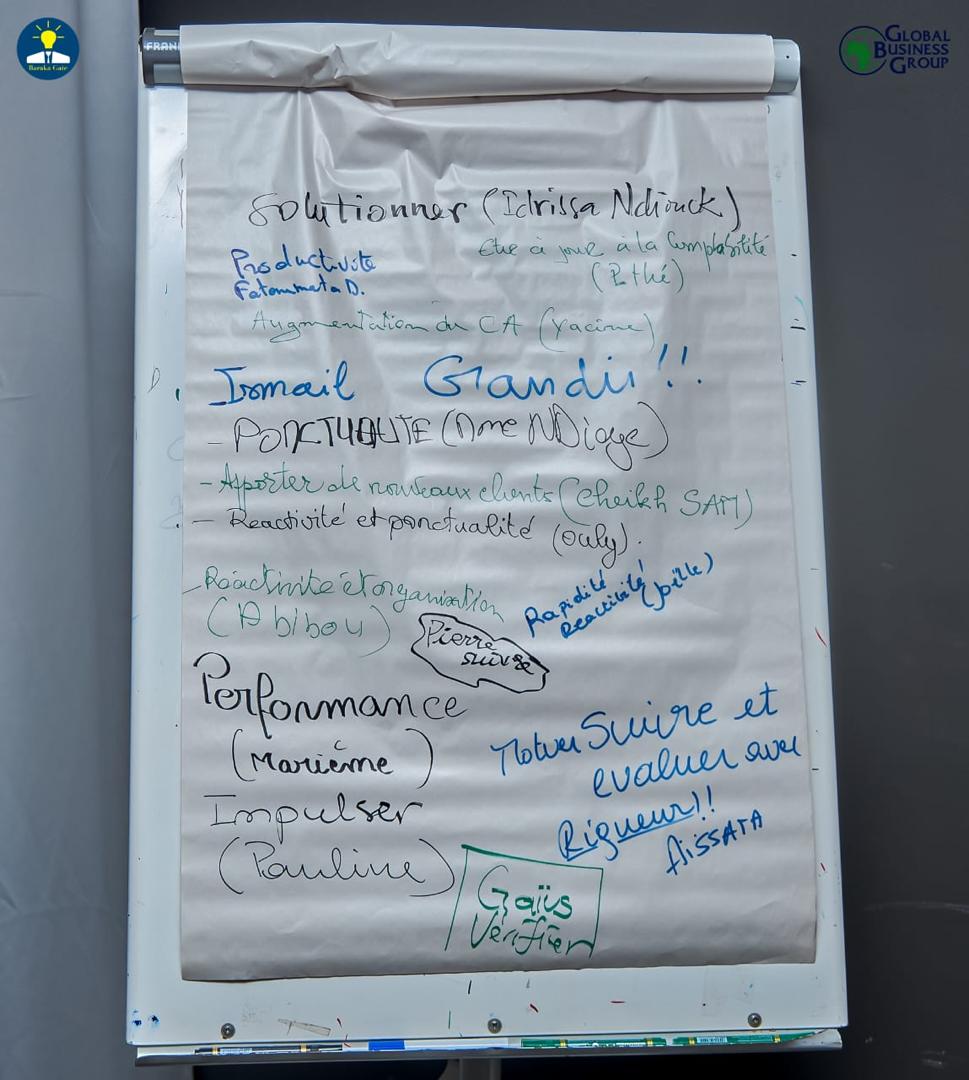 Baraka Gate
GLOBAL
BUSINESS
GROUP
FRAN
Solutionner (Idrissa Ndiouck)
Etre à jour à la Comptabilité
(Pathé)
Productivité
Fatoumata D.
Augmentation du CA (Yacine)
Ismail Grandir !!
- PONCTUALITE (Mme NDiaye)
- Apporter de nouveaux clients (Cheikh SAM)
- Reactivité et ponctualité (ouly).
- Réactivité et organisation
(Abibou)
Rapidité
Reactivité
Pierre
suivre
Performance
(Marième)
Motiver Suivre et
evaluer avec
Rigueur!!
AissATA
Impulser
(Pauline)
Gaïus
Vérifier